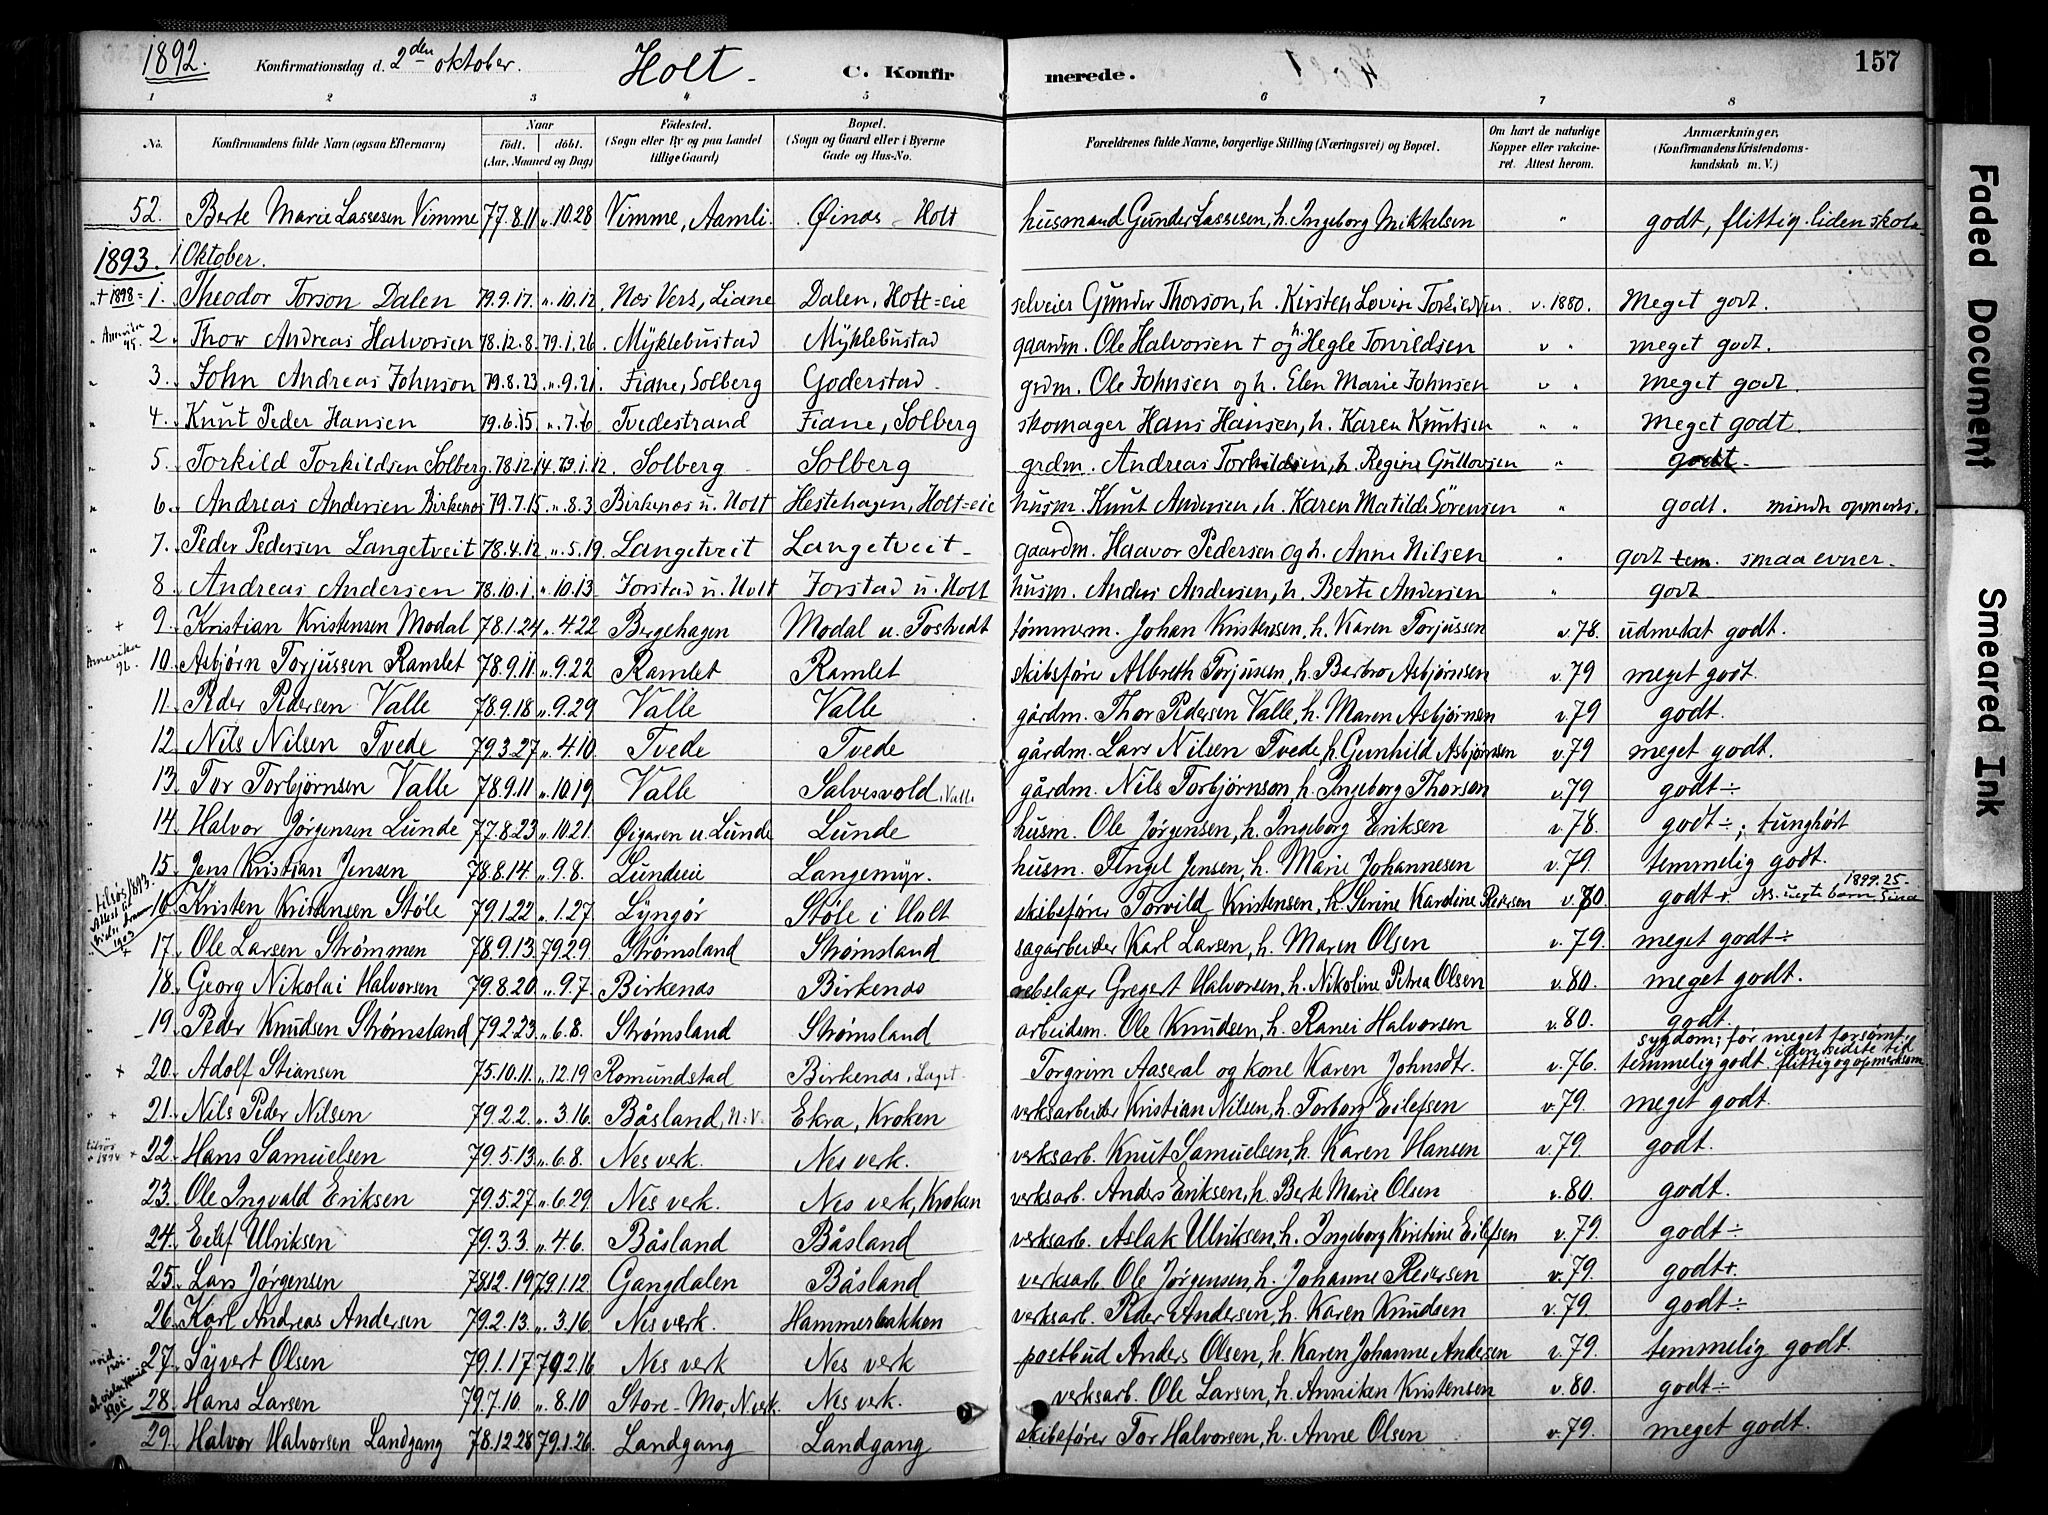 1892. Konfirmationsdag d. 2den oktober. Holt. C. Konfirmerede. 157
1 2 3 4 5 6 7 8
No. Konfirmandens fulde Navn (ogsaa Efternavn) Naar født. døbt. (Aar, Maaned og Dag) Fødested. (Sogn eller By og paa Landet tillige Gaard) Bopæl. (Sogn og Gaard eller i Byerne Gade og Hus-No. Forældrenes fulde Navne, borgerlige Stilling (Næringsvei) og Bopæl. Om havt de naturlige Kopper eller vaccineret. Attest herom. Anmærkninger. (Konfirmandens Kristendomskundskab m. V.)
52. Berte Marie Lassesen Vimme 77.8.11 „ 10.28 Vimme, Aamli. Øinæs Holt husmand Gunder Lassesen, h. Ingeborg Mikkelsen " godt, flittig. liden skole
1893. 1 Oktober.
+ 1898 1. Theodor Torson Dalen 79.9.17. „ 10.12 Næs Verk, Liane Dalen, Holt=eie selveier Gunder Thorson, h. Kirsten Lovise Torkildsen v. 1880. Meget godt.
Amerika 95. 2. Thor Andreas Halvorsen 78.12.8. 79.1.26 Myklebustad Myklebustad gaardm. Ole Halvorsen + og h. Hegle Torvildsen v " meget godt.
3. John Andreas Johnson 79.8.23 „ 9.21 Fiane, Solberg Goderstad grdm. Ole Johnsen og h. Elen Marie Johnsen v " Meget godt.
4. Knut Peder Hansen 79.6.15 „ 7.6 Tvedestrand Fiane, Solberg skomager Hans Hansen, h. Karen Knutsen " " Meget godt.
5. Torkild Torkildsen Solberg 78.12.14. 79.1.12. Solberg Solberg grdm. Andreas Torkildsen, h. Regine Gullovsen " godt.
6. Andreas Andersen Birkenæs 79.7.15 „ 8.3 Birkenæs u. Holt Hestehagen, Holt=eie husm. Knut Andersen, h. Karen Matilde Sörensen " godt. mindre opmerks.
7. Peder Pedersen Langetveit 78.4.12 „ 5.19 Langetveit Langetveit gaardm. Haavor Pedersen og h. Anne Nilsen " godt tem. smaa evner.
8 Andreas Andersen 78.10.1. „ 10.13 Forstad u. Holt Forstad u. Holt husm. Anders Andersen, h. Berte Andersen " godt
+ 9. Kristian Kristensen Modal 78.1.24 „ 4.22 Bergehagen Modal u. Fostvedt tømmerm. Johan Kristensen, h. Karen Torjussen v.78. udmerket godt.
Amerika 96. 10. Asbjørn Torjussen Ramlet 78.9.11 „ 9.22 Ramlet Ramlet skibsfører Albreth Torjusen, h. Barbro Asbjørnsen v.79 meget godt.
11. Peder Pedersen Valle 78.9.18 „ 9.29 Valle Valle gårdm. Thor Pedersen Valle, h. Maren Asbjørnsen v.79 godt.
12. Nils Nilsen Tvede 79.3.27 „ 4.10. Tvede Tvede gårdm. Lars Nilsen Tvede, h. Gunhild Asbjørnsen v.79 meget godt.
13. Tor Torbjørnsen Valle 78.9.11 „ 10.19 Valle Salvesvold, Valle gårdm. Nils Torbjørnson, h. Ingeborg Thorson v.79 godt ÷
14. Halvor Jørgensen Lunde 77.8.23 „ 10.21. Øigaren u. Lunde Lunde husm. Ole Jørgensen, h. Ingeborg Eriksen v.78. godt ÷; tunghørt
15. Jens Kristian Jensen 78.8.14. „ 9.8. Lundeeie Langemyr. husm. Tengel Jensen, h. Marie Johannesen v.79. temmelig godt.
16. Kristen Kristensen Støle 79.1.22 „ 1.27. Lyngør Støle i Holt skibsfører Torvild Kristensen, h. Serine Kardine Pedersen v.80 godt +. 1899.25
17. Ole Larsen Strømmen 78.9.13. 79.2.9. Strømsland Strømsland sagarbeider Karl Larsen, h. Maren Olsen v.79. meget godt ÷
18. Georg Nikolai Halvorsen 79.8.20. „ 9.7. Birkenæs Birkenæs rebslager Gregert Halvorsen, h. Nikoline Petrea Olsen v.80. meget godt.
19. Peder Knudsen Strømsland 79.2.23 „ 6.8. Strømsland Strømsland arbeidsm. Ole Knudsen, h. Ranei Halvorsen v.80. godt.
+ 20. Adolf Stiansen 75.10.11. „ 12.19 Romundstad Birkenæs, Laget. Torgrim Aaseral og kone Karen Johnsdtr. v.76. sygdom; før meget forsømt. temmelig godt. i den sidste tid flittig og opmerksom
+ 21. Nils Peder Nilsen 79.2.2. „ 3.16. Båsland, N.V. Ekra, Kroken verksarbeider Kristian Nilsen, h. Torborg Eilefsen v.79. meget godt.
+ 22. Hans Samuelsen 79.5.13 „ 6.8. Nes verk. Nes verk. verksarb. Knut Samuelsen, h. Karen Hansen v.79 godt.
23. Ole Ingvald Eriksen 79.5.27 „ 6.29. Nes verk. Nes verk, Kroken verksarb. Anders Eriksen, h. Berte Marie Olsen v.80. godt.
24. Eilef Ulriksen 79.3.3. „ 4.6. Båsland Båsland verksarb. Aslak Ulriksen, h. Ingeborg Kirstine Eilefsen v.79. godt ÷
25. Lars Jørgensen 78.12.19 79.1.12. Gangdalen Båsland verksarb. Ole Jørgensen, h. Johanne Pedersen v.79. godt +.
26. Karl Andreas Andersen 79.2.13. „ 3.16. Nes verk. Hammerbakken verksarb. Peder Andersen, h. Karen Knudsen v.79. godt ÷
27. Syvert Olsen 79.1.17 79.2.16 Nes verk Nes verk postbud Anders Olsen, h. Karen Johanne Andersen v.79. temmelig godt.
28. Hans Larsen 79.7.10. „ 8.10 Store-Mo, N.verk. Nes verk. verksarb. Ole Larsen, h. Anniken Kristensen v.80. godt ÷
29. Halvor Halvorsen Landgang 78.12.28 79.1.26. Landgang Landgang skibsfører Tor Halvorsen, h. Anne Olsen v.79. meget godt.
Faded Document
Smeared Ink